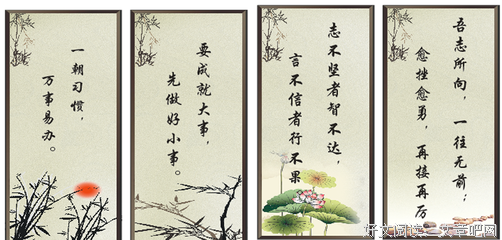 一朝习惯，
万事易办。
要成就大事，
先做好小事。
志不坚者智不达，
言不信者行不果
吾志所向，一往无前；
愈挫愈勇，再接再厉
好文阅读—文章吧网